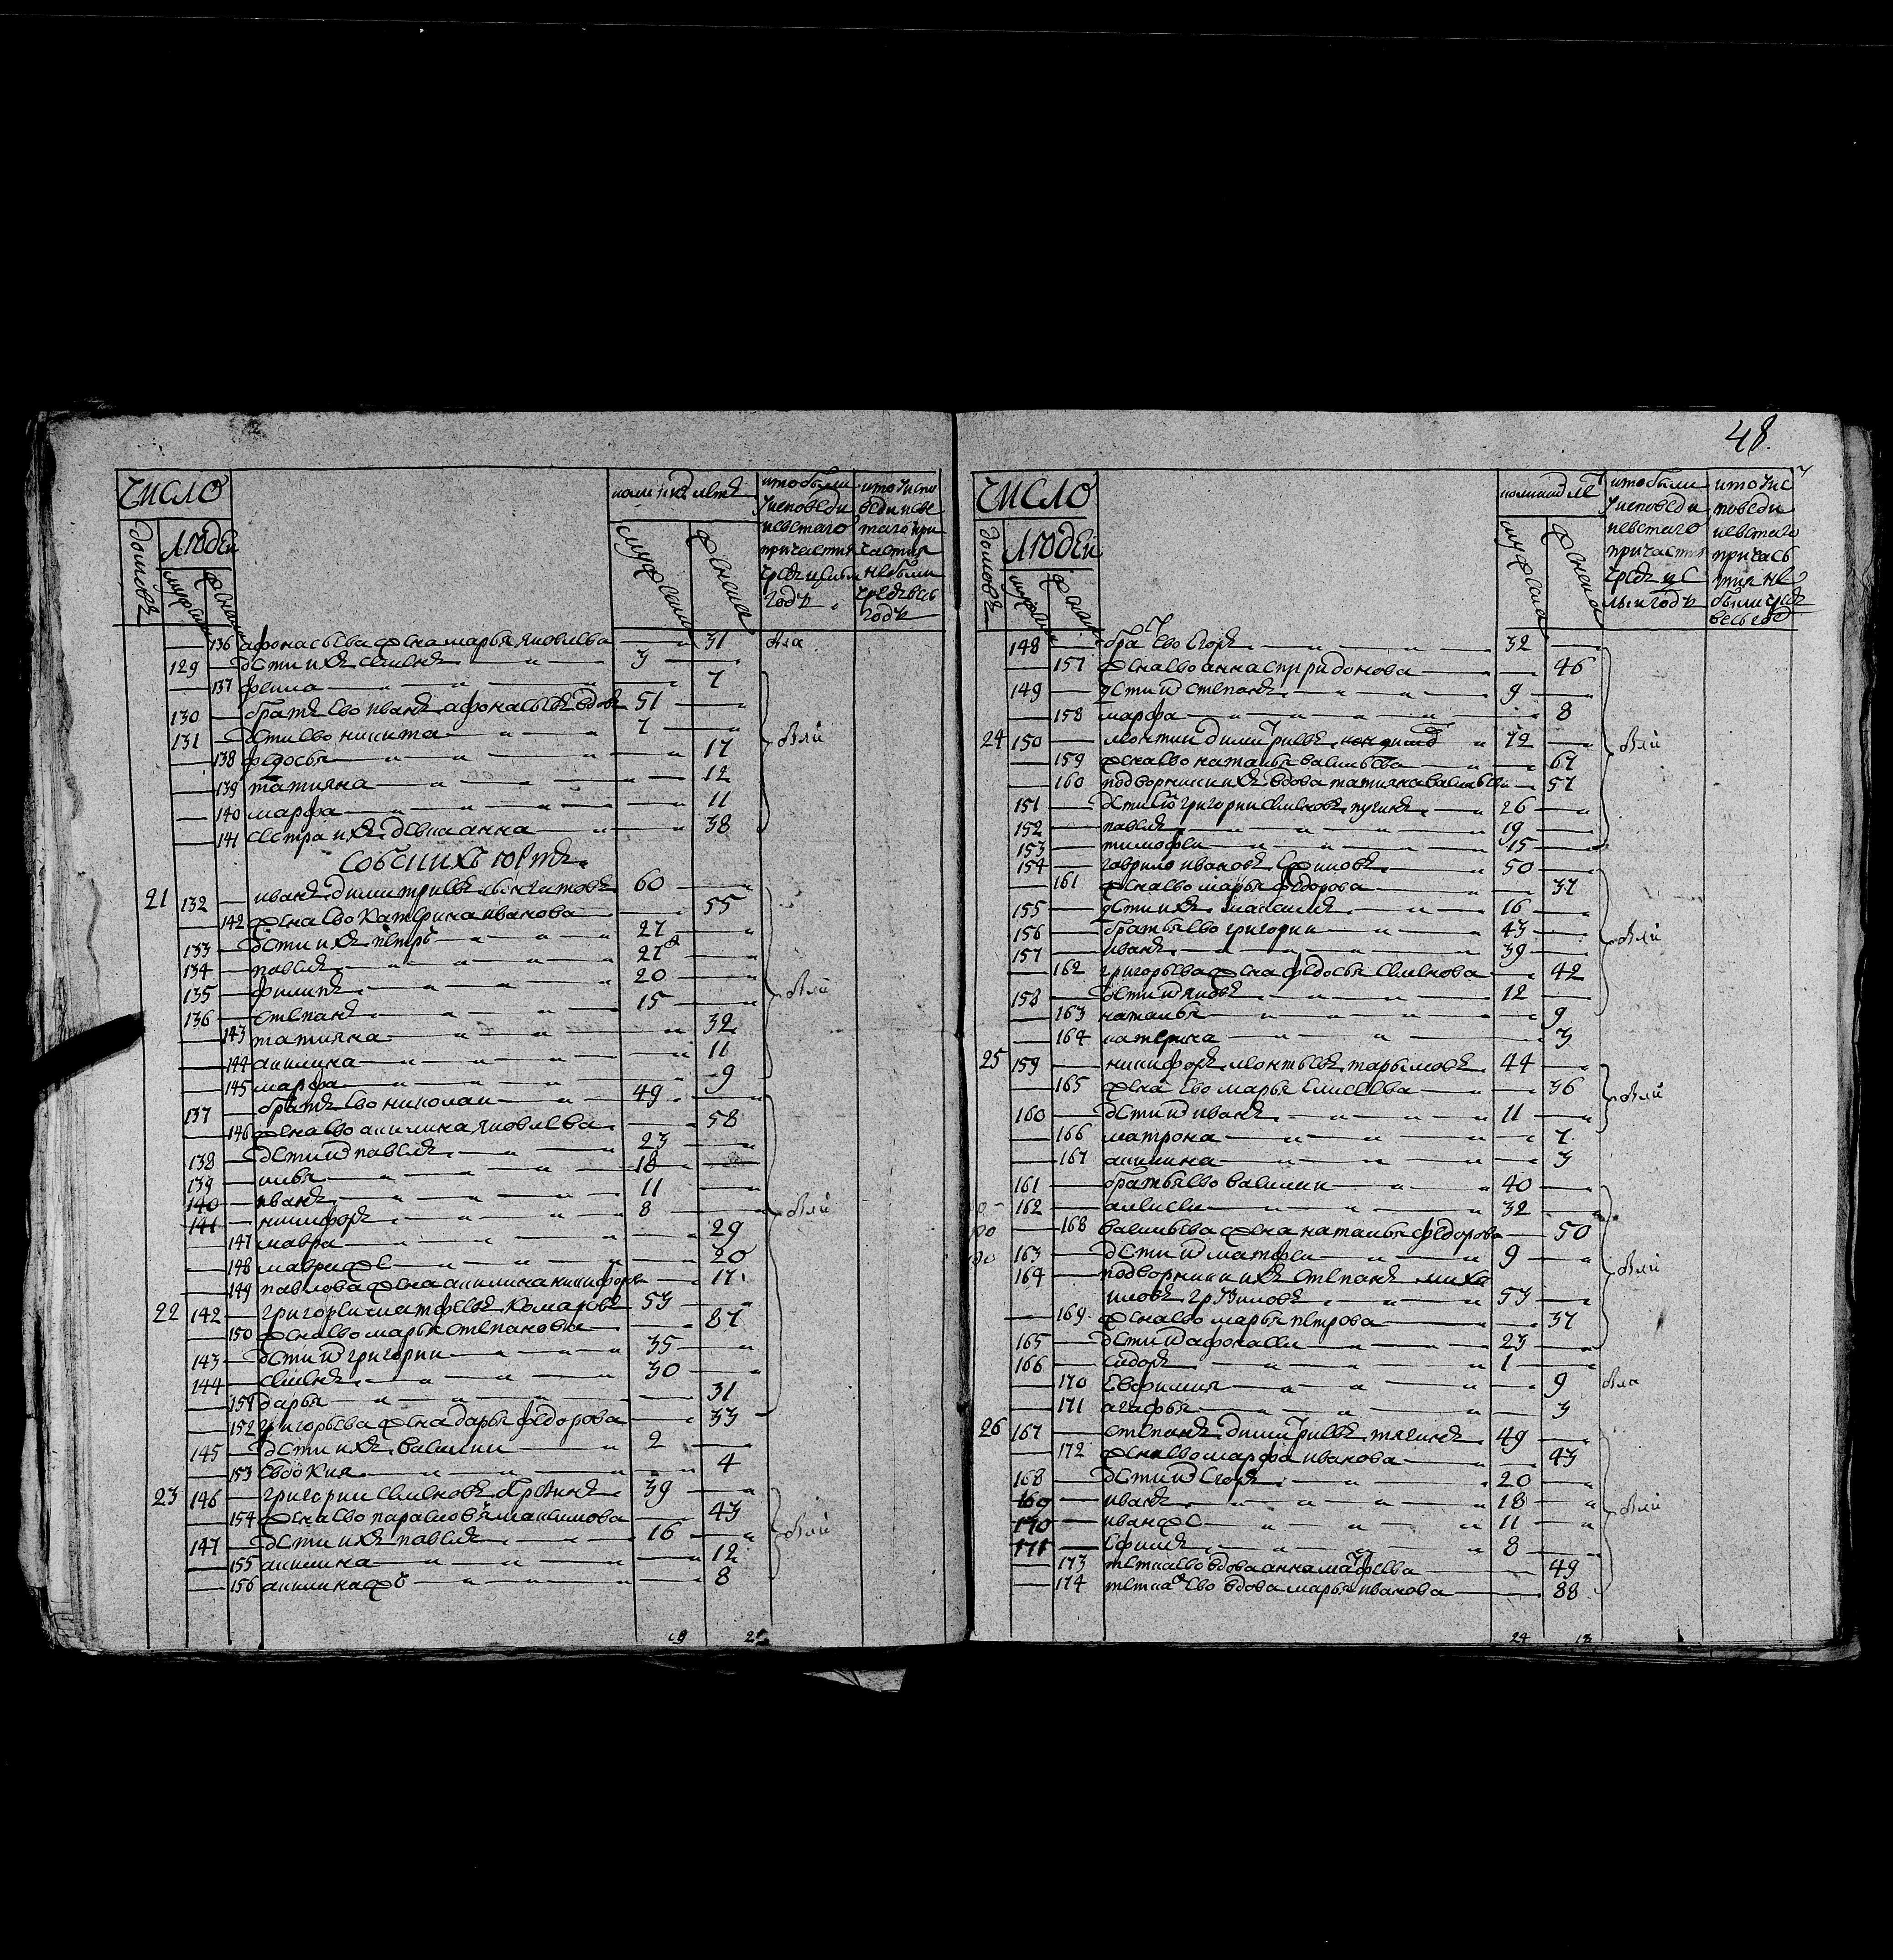 число
домовъ
людей
мужеска
женска
коликихъ летъ
мужеска
женска
кто были
у исповеди
и светаго
причастия
чрезъ целыи
годъ
кто у испо
веди и све
таго при
частия
не были
чрезъ весь
годъ
136 афонасьева жена марья яковлева 31 бла
129 дети ихъ семенъ 3
137 фекла 7
130 братъ ево иванъ афонасьевъ вдовъ 51
131 дети ево никита 7
138 федосья 17 бли
139 татияна 12
140 марфа 11
141 сестра ихъ девка анна 38
21 132 иванъ димитриевъ 60
142 жена ево катерина иванова 55
133 дети ихъ петръ 27
134 павелъ 27
135 филипъ 20 бли
136 степанъ 15
143 татияна 32
144 акилина 11
145 марфа 9
137 братъ ево николаи 49
146 жена ево акилина яковлева 58
138 дети и павелъ 23
139 илья 18
140 иванъ 11
141 никифоръ 8 бли
147 мавра 29
148 мавра же 20
149 павлова жена акилина никифорова 17
22 142 григории матфеевъ комаровъ 53
150 жена ево марья степановна 87
143 дети и григории 35
144 семенъ 30
151 дарья 31
152 григорьева жена дарья федорова 33
145 дети ихъ василии 2
153 евдокия 4
23 146 григории семеновъ 39
154 жена ево парасковья максимова 43
147 дети ихъ павелъ 16 бли
155 акилина 12
156 акилина жъ 8
19 21
48
число
домовъ
людей
мужеска
женска
мужеска
женска
кто были
у исповеди
и светаго
причастия
чрезъ це
лыи годъ
кто у ис
поведи
и светаго
причась
тия не
были чрезъ
весь год
148 бра ево егоръ 32
157 жена ево анна спиридонова 46
149 дети и степанъ 9
158 марфа 8
24 150 леонтии димитриевъ 72 бли
159 жена ево наталья васильева 67
160 подворники ихъ вдова татияна васильева 57
151 дети ей григории семеновъ 26
152 павелъ 19
153 тимофеи 15
154 гаврило ивановъ ефимовъ 50
161 жена ево марья федорова 37
155 дети ихъ максимъ 16
156 братья ево григории 43 бли
157 иванъ 39
162 григорьева жена федосья семенова 42
158 дети и яковъ 12
163 наталья 9
164 катерина 3
25 159 никифоръ леонтьевъ 44
165 жена ево марья елисеева 36 бли
160 дети и иванъ 11
166 матрона 7
167 акилина 3
161 братья ево василии 40
162 алексеи 32
168 васильева жена наталья федорова 50
163 дети и матфеи 9 бли
164 подворники ихъ степанъ миха
иловъ 53
169 жена ево марья петрова 37
165 дети и афонасеи 23
166 сидоръ 1
170 евфимия 9 бла
171 агафья 3
26 167 степанъ димитриевъ 49
172 жена ево марфа иванова 43
168 дети и егоръ 20
169 иванъ 18 бли
170 иван же 11
171 ефимъ 8
173 тетка ево вдова анна матфеева 49
174 тетка ж ево вдова марья иванова 88
24 18